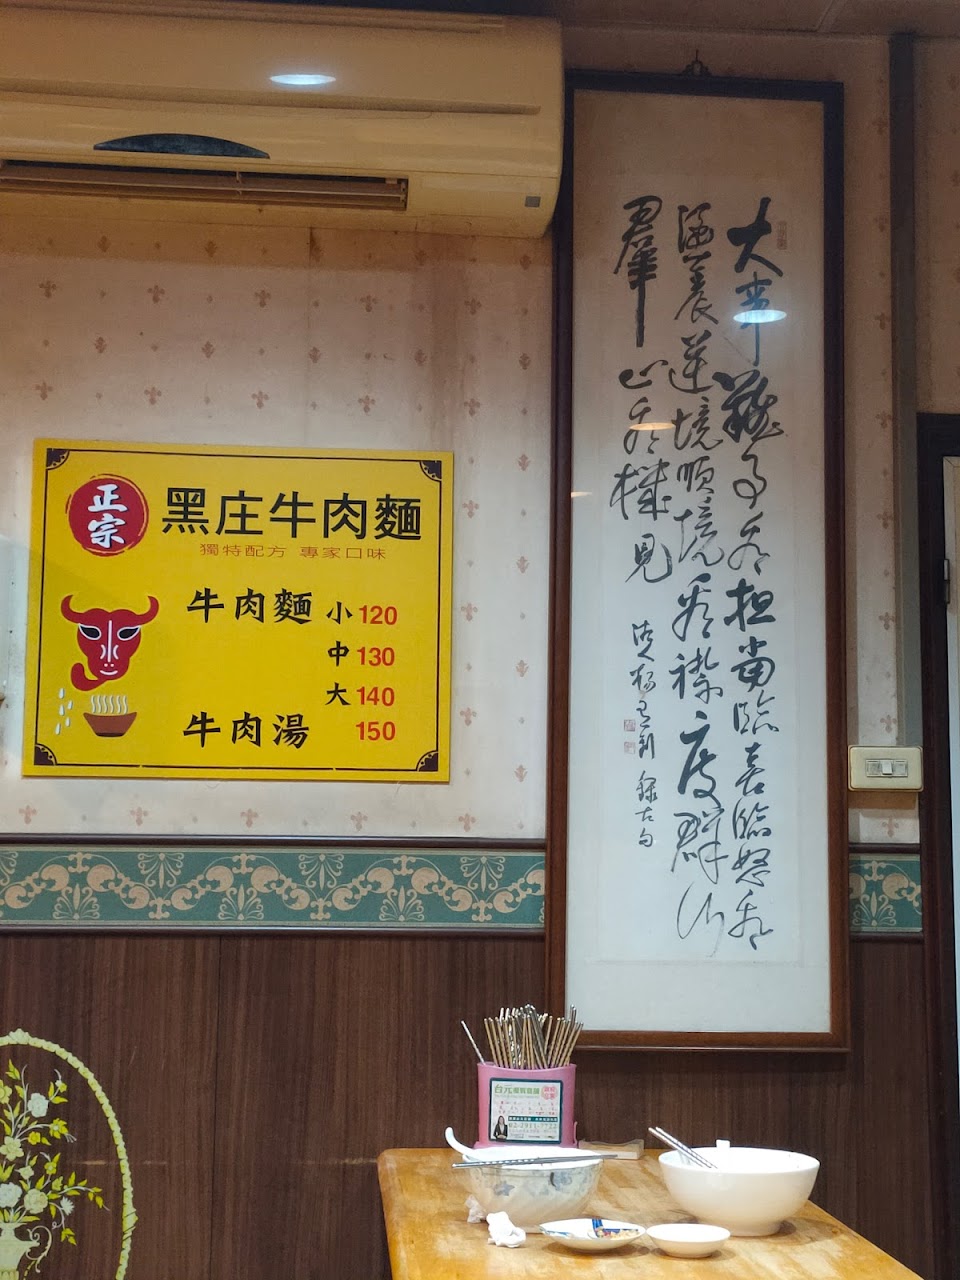 正宗
黑庄牛肉麵
獨特配方 專家口味
牛肉麵 小 120
中 130
大 140
牛肉湯 150
大事難事看担當臨喜臨怒看
涵養逆境順境看襟度群行
羣止看識見
錄古句